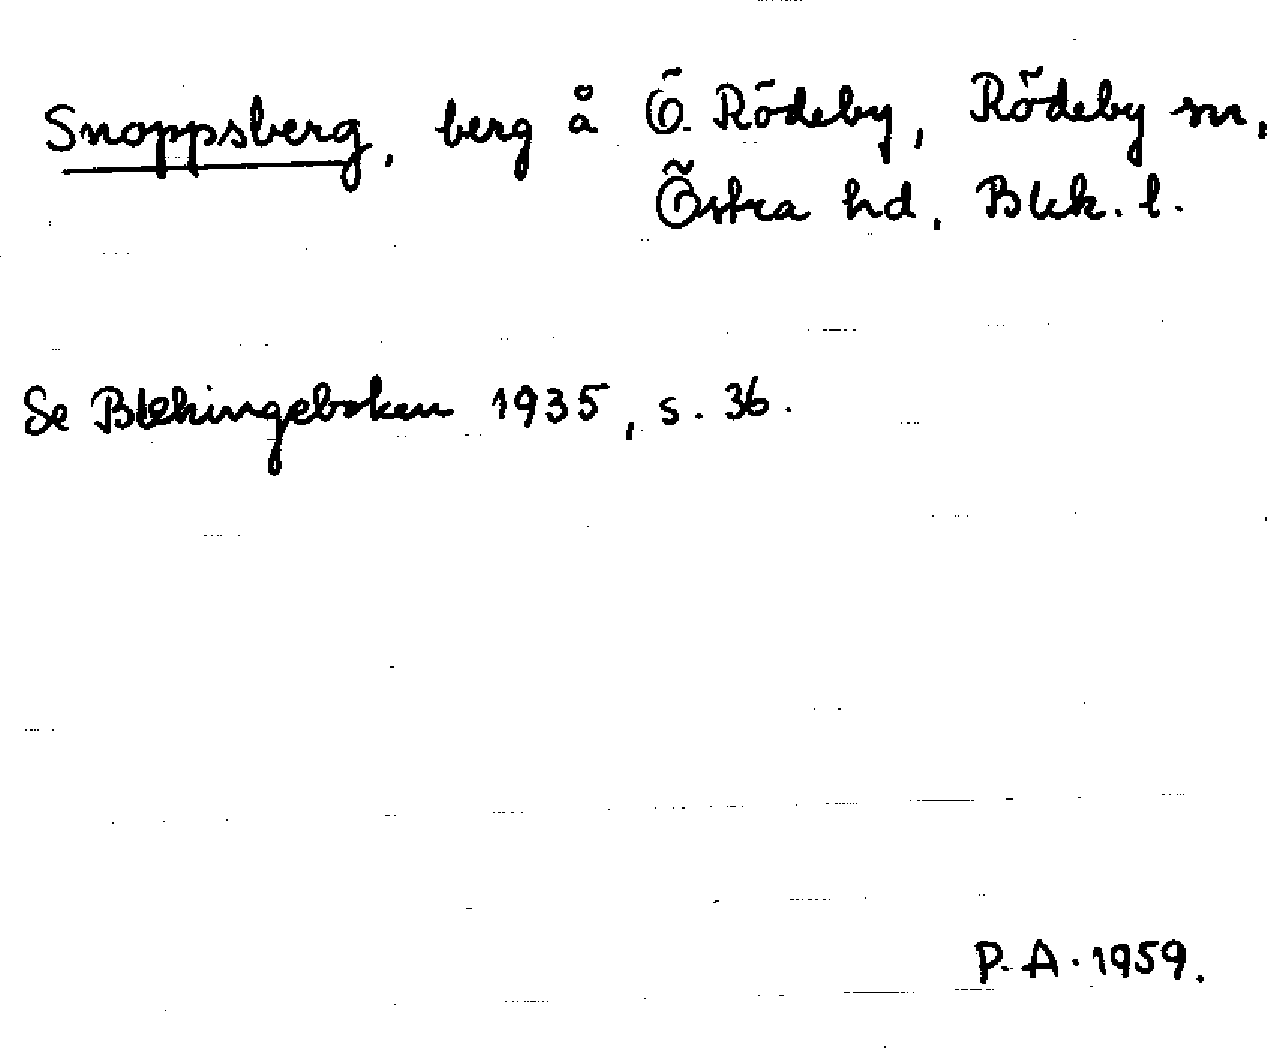 Snoppsberg, berg å Ö. Rödeby, Rödeby sn,
Östra hd, Blek. l.
Se Blekingeboken 1935, s. 36.
P. A. 1959.